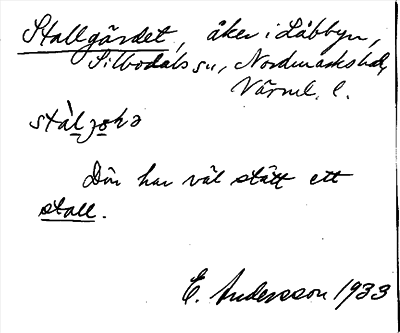 Stallgärdet, åker i Låbbyn,
Silbodals sn, Nordmarks hd,
Värml. l.
stàl̠jo̠kə
Där har väl stått ett
stall.
E. Andersson 1933